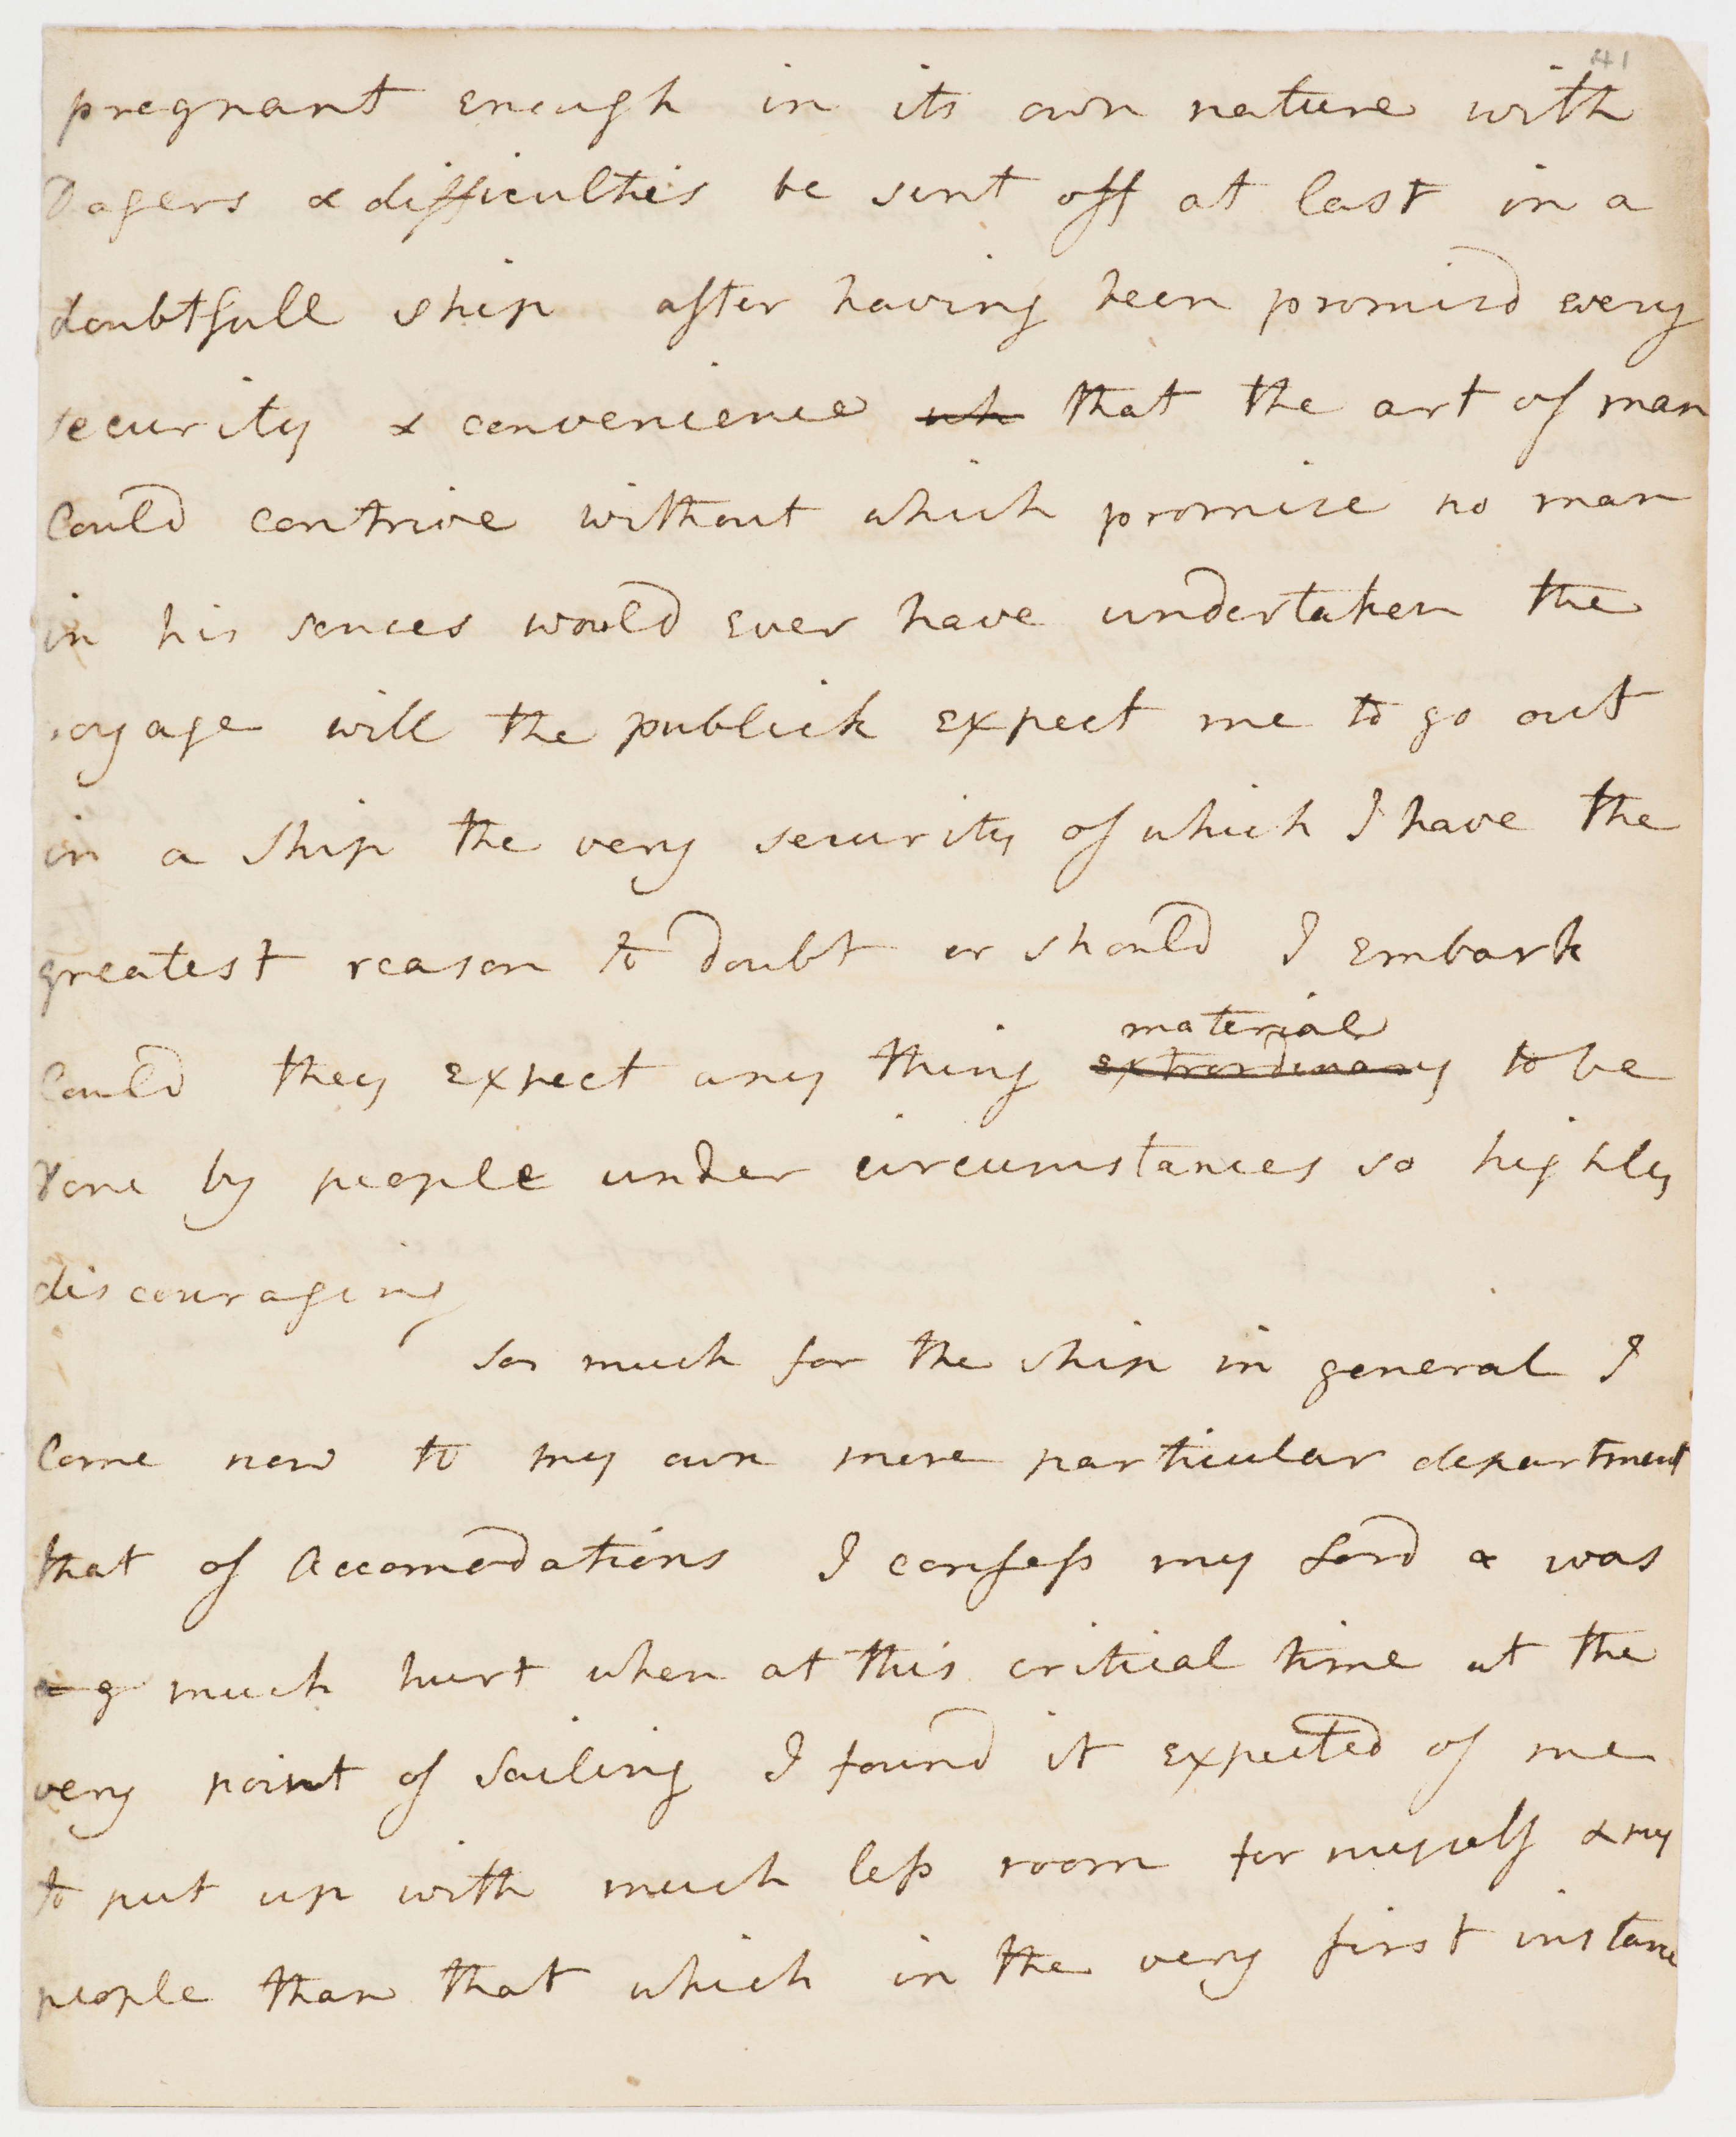 41
pregnant enough in its own nature with
Dagers & difficulties be sent off at last in a
doubtfull ship after having been promisd every
security & convenience wh that the art of man
Could contrive without which promise no man
in his sences would Ever have undertaken the
voyage will the publick Expect me to go out
in a Ship the very security of which I have the
greatest reason to doubt or should I Embark
material
Could they Expect any thing Extrordinary to be
done by people under circumstances so highly
discouraging
so much for the ship in general I
Come now to my own more particular department
that of Accomodations I confess my Lord & was
much hurt when at this critical time at the
very point of Sailing I found it Expected of me
to put up with much less room for myself & my
people than that which in the very first instance